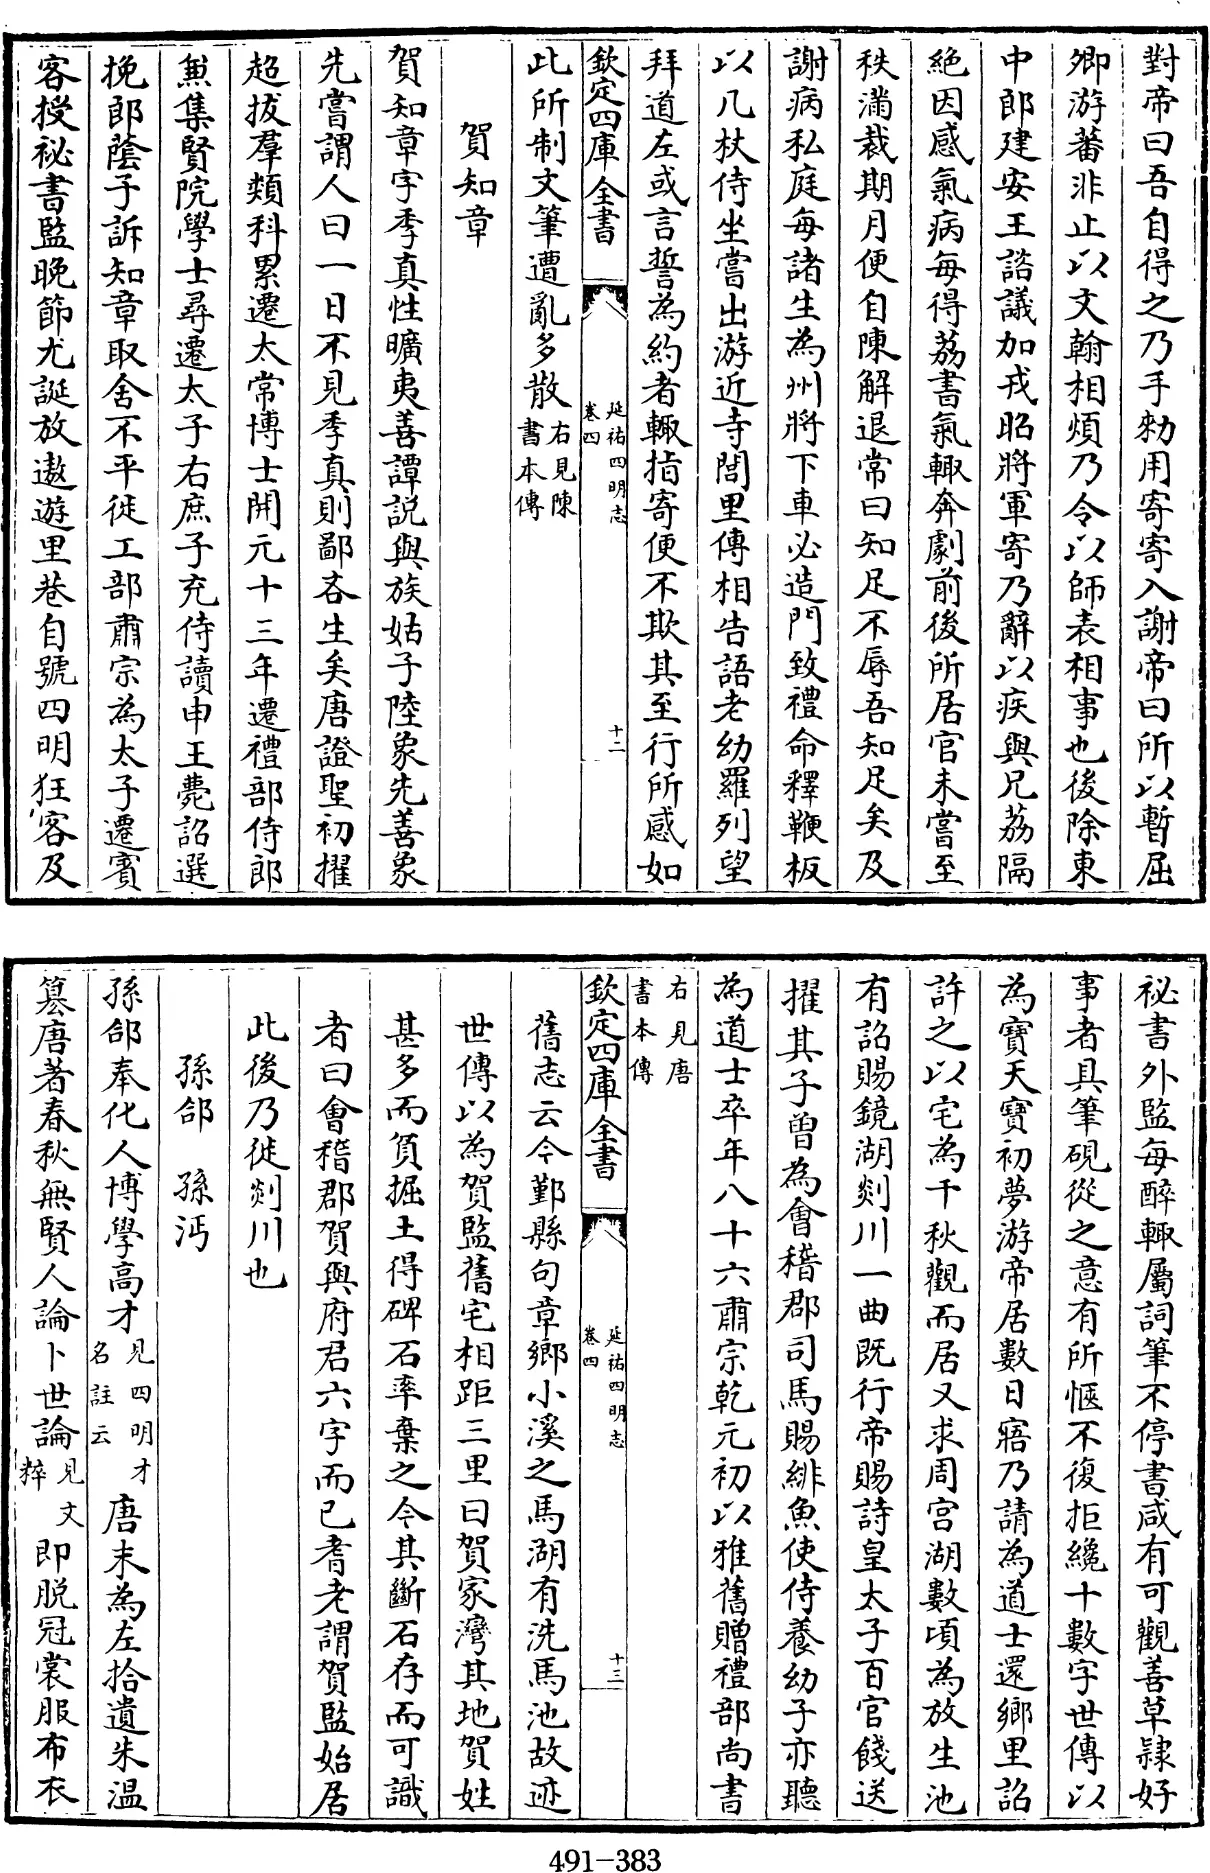 對帝曰吾自得之乃手勑用寄寄入謝帝曰所以暫屈
卿游蕃非止以文翰相煩乃令以師表相事也後除東
中郎建安王諮議加戎昭將軍寄乃辭以疾與兄荔隔
絶因感氣病每得荔書氣輒奔劇前後所居官未嘗至
秩滿裁期月便自陳解退常曰知足不辱吾知足矣及
謝病私庭每諸生為州將下車必造門致禮命釋鞭板
以几杖侍坐嘗出游近寺閭里傳相告語老幼羅列望
拜道左或言誓為約者輒指寄便不欺其至行所感如
欽定四庫全書
延祐四明志
卷四
十二
此所制文筆遭亂多散右見陳書本傳
賀知章
賀知章字季真性曠夷善譚説與族姑子陸象先善象
先嘗謂人曰一日不見季真則鄙吝生矣唐證聖初擢
超拔羣類科累遷太常博士開元十三年遷禮部侍郎
兼集賢院學士尋遷太子右庶子充侍讀申王薨詔選
挽郎蔭子訴知章取舍不平徙工部肅宗為太子遷賓
客授祕書監晚節尤誕放遨遊里巷自號四明狂客及
祕書外監每醉輒屬詞筆不停書咸有可觀善草隸好
事者具筆硯從之意有所愜不復拒纔十數字世傳以
為寶天寶初夢游帝居數日寤乃請為道士還鄉里詔
許之以宅為千秋觀而居又求周宫湖數頃為放生池
有詔賜鏡湖剡川一曲既行帝賜詩皇太子百官餞送
擢其子曾為會稽郡司馬賜緋魚使侍養幼子亦聽
為道士卒年八十六肅宗乾元初以雅舊贈禮部尚書
右見唐書本傳
欽定四庫全書
延祐四明志
卷四
十三
舊志云今鄞縣句章鄉小溪之馬湖有洗馬池故迹
世傳以為賀監舊宅相距三里曰賀家灣其地賀姓
甚多而負掘土得碑石率棄之今其斷石存而可識
者曰會稽郡賀與府君六字而已耆老謂賀監始居
此後乃徙剡川也
孫郃　孫沔
孫郃奉化人博學高才見四明才名註云唐末為左拾遺朱温
簒唐著春秋無賢人論卜世論見文粹即脱冠裳服布衣
491-383